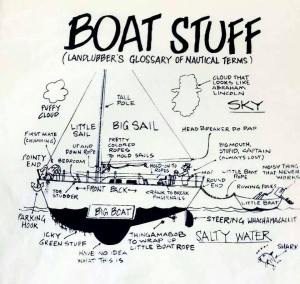 BOAT STUFF
(LANDLUBBER'S GLOSSARY OF NAUTICAL TERMS)
PUFFY
CLOUD
TALL
POLE
CLOUD THAT
LOOKS LIKE
ABRAHAM
LINCOLN
SKY
LITTLE
SAIL
BIG SAIL
FIRST MATE
(CHUMMING)
UP AND
DOWN ROPE
PRETTY
COLORED
ROPES
TO HOLD SAILS
HEAD BREAKER DO DAD
BIGMOUTH,
STUPID, CAPTAIN
(ALWAYS LOST)
POINTY
END
BEDROOM
HOLD ON TO
ROPES
NOISY THING
THAT NEVER
WORKS
LITTLE BOAT
ROPE
ROUND
END
ROWING POLES
TOE
STUBBER
FRONT
BACK
CRANK TO BREAK
FINGERNAILS
LITTLE BOAT
BIG BOAT
PARKING
HOOK
STEERING WHACHAMACALLIT
ICKY
GREEN STUFF
HAVE NO IDEA
WHAT THIS IS
THINGAMABOB
TO WRAP UP
LITTLE BOAT ROPE
SALTY WATER
SHARK